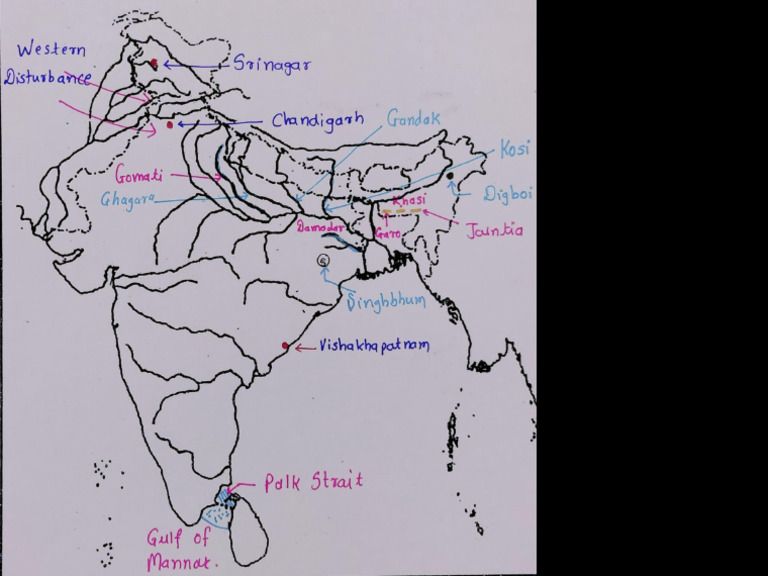 Western
Disturbance
Srinagar
Chandigarh
Gandak
Kosi
Gomati
Ghagara
Digboi
Khasi
Damodar
Garo
Jaintia
S
Singhbhum
Vishakhapatnam
Palk Strait
Gulf of
Mannar.